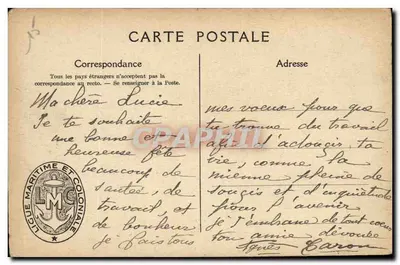 CARTE POSTALE
Correspondance
Tous les pays étrangers n'acceptent pas la
correspondance au recto. — Se renseigner à la Poste.
Ma chère Lucie
Je te souhaite
une bonne et
heureuse fête
beaucoup de
santée, de
travail, et
de bonheur
je fais tous
LIGUE MARITIME ET COLONIALE
LMC
Adresse
mes voeux pour que
tu trouve du travail
afin d'adoucir ta
vie, comme la
mienne pleine de
soucis et d'inquiétude
pour l'avenir
je t'embrasse de tout coeur
ton amie dévouée
Agnès Caron
CPARAMA